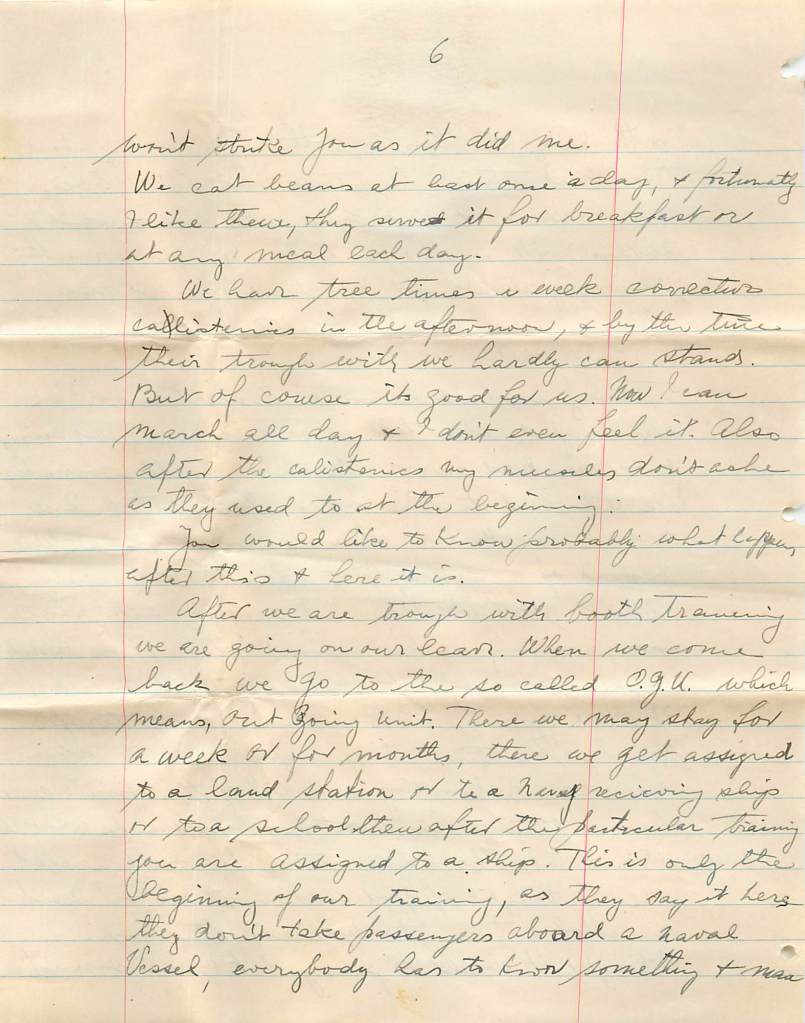 6
won't strike you as it did me.
We eat beans at least once a day, & fortunatly
I like them, they serve it for breakfast or
at any meal each day.
We have tree times a week corrective
callistenics in the afternoon, & by the time
their trough with we hardly can stand.
But of course its good for us. Now I can
march all day & I don't even feel it. Also
after the calistenics my muscles don't ashe
as they used to at the beginning.
You would like to know probably what happens
after this & here it is.
After we are trough with booth training
we are going on our leave. When we come
back we go to the so called O.G.U. which
means, Out Going Unit. There we may stay for
a week or for months, there we get assigned
to a land station or to a Naval recieving ship
or to a school then after the particular training
you are assigned to a ship. This is only the
beginning of our training, as they say it here
they don't take passengers aboard a naval
Vessel, everybody has to know something &